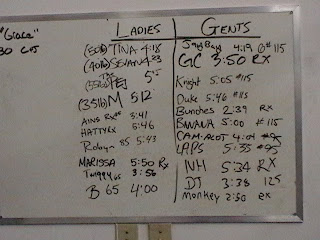 "Grace"
30 CJS
LADIES
(50lb) TINA 4:18
(40lb) SEVAN 4:23
(35lb) 5:15
(35lb) M 5:12
AINS RX 5:41
HATTY RX 5:46
Robyn 85 5:43
MARISSA 5:50 RX
Twiggy 65 3:56
B 65 4:00
GENTS
4:19 #115
GC 3:50 RX
Knight 5:05 #115
Duke 5:46 #115
Bunches 2:39 RX
BANANA 5:00 #115
CAMALOT 4:04 #95
LAPPS 5:35 #95
NH 5:34 RX
DJ 3:38 125
Monkey 2:50 RX